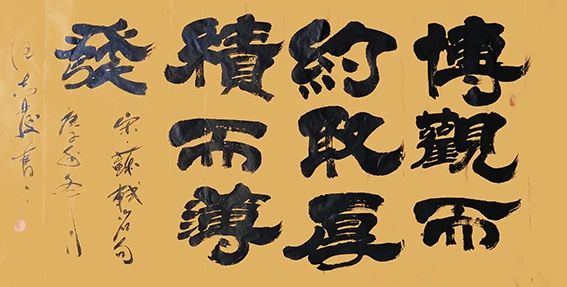 博觀而
約取厚
積而薄
發
宋蘇軾名句
庚子冬月
書